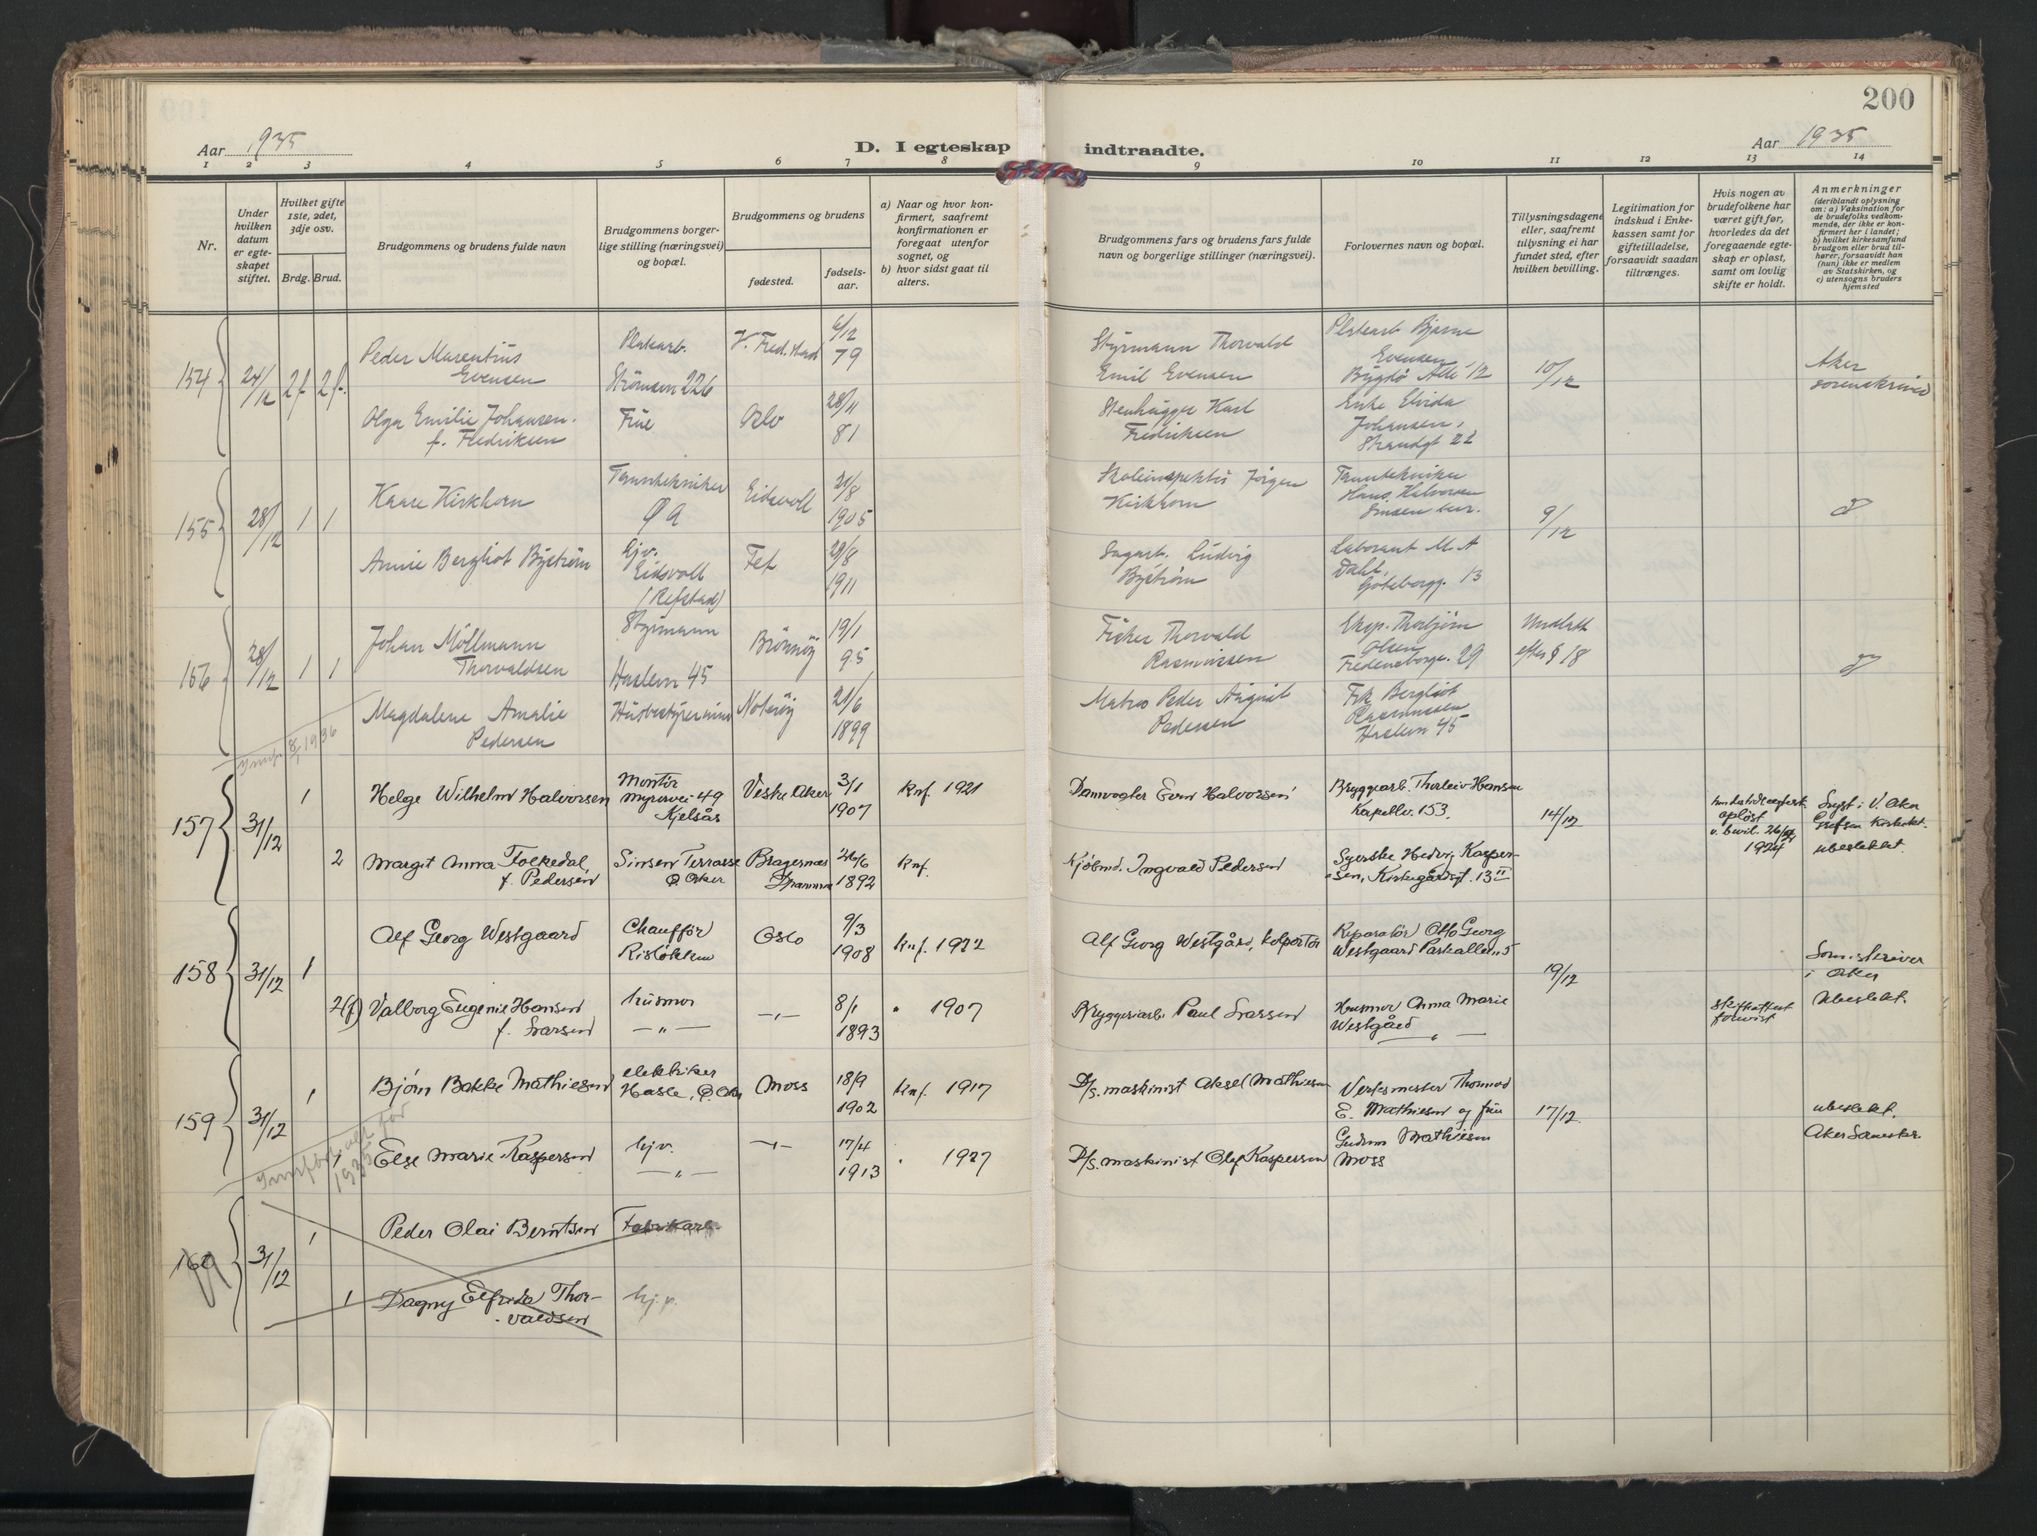 200
Aar 1935
D. I egteskap indtraadte.
Aar 1935
1 2 3 4 5 6 7 8 9 10 11 12 13 14
Nr.
Under
hvilken
datum
er egte-
skapet
stiftet.
Hvilket gifte
1ste, 2det,
3dje osv.
Brdg. Brud.
Brudgommens og brudens fulde navn
Brudgommens borger-
lige stilling (næringsvei)
og bopæl.
Brudgommens og brudens
fødested.
fødsels-
aar.
a) Naar og hvor kon-
firmert, saafremt
konfirmationen er
foregaat utenfor
sognet, og
b) hvor sidst gaat til
alters.
Brudgommens fars og brudens fars fulde
navn og borgerlige stillinger (næringsvei).
Forlovernes navn og bopæl.
Tillysningsdagene
eller, saafremt
tillysning ei har
fundet sted, efter
hvilken bevilling.
Legitimation for
indskud i Enke-
kassen samt for
giftetilladelse,
forsaavidt saadan
tiltrænges.
Hvis nogen av
brudefolkene har
været gift før,
hvorledes da det
foregaaende egte-
skap er opløst,
samt om lovlig
skifte er holdt.
Anmerkninger
(deriblandt oplysning
om: a) Vaksination for
de brudefolks vedkom-
mende, der ikke er kon-
firmert her i landet;
b) hvilket kirkesamfund
brudgom eller brud til-
hører, forsaavidt han
(hun) ikke er medlem
av Statskirken, og
c) utensogns bruders
hjemsted
154 24/12 2f 2f.
Peder Marentius
Evensen
Strömsvn 226
V. Fred.stad
6/12
79
Styrmann Thorvald
Emil Evensen
Bjarne
Evensen
Bygdö Alle 12
10/12
Aker
sorenskriveri
Olga Emilie Johansen.
f. Fredriksen
Früe
Oslo
28/11
81
Stenhugger Karl
Fredriksen
Enke Elvida
Johansen,
Strandgt 22
155 28/12 1 1
Kaare Kirkhorn
Tanntekniker
Ø A
Eidsvoll
21/8
1905
Skoleinspektör Jörgen
Kirkhorn
Tanntekniker
Hans Halvorsen
9/12
Annie Bergliot Byström
Hjv.
Eidsvoll
(Refstad)
Fet
29/8
1911
Sagarb. Ludvig
Byström
Laborant M. A
Dahl,
Göteborgg. 13
156 28/12 1 1
Johan Möllmann
Thorvaldsen
Styrmann
Haslevn 45
Brönnöy
19/1
95
Fisker Thorvald
Rasmussen
Eksp. Thorbjörn
Olsen
Fredensborgv. 29
Undlatt
efter § 18
Magdalene Amalie
Pedersen
Husbestyrerinne
Notteröy
21/6
1899
Matros Peder August
Pedersen
Frk Bergliot
Rasmussen
Haslevn 45
1936
157 31/12 1
Helge Wilhelm Halvorsen
Montör
Myrervei 49
Kjelsås
Vestre Aker
3/1
1907
Knf 1921
Damvogter Even Halvorsen
Bryggearb. Thorleiv Hansen
Kapellv. 153.
14/12
opløst
v. bevil. 26/9
1924
Lyst i V. Aker
Grefsen Kirkekt.
ubeslektet.
2
Margit Anna Folkedal
f. Pedersen
Sinsen Terrasse
Ø. Aker
Bragernes
Drammen
26/6
1892
Knf.
Kjøbmd. Ingvald Pedersen
Syerske Hedvig Kasper-
sen, Kirkegårdsgt. 13 II
158 31/12 1
Alf Georg Westgaard
Chauffør
Risløkken
Oslo
9/3
1908
Knf. 1922
Alf Georg Westgård, kolportør
Reparatør Otto Georg
Westgaard Parkalleen 5
19/12
Sorenskriver
i Aker
Ubeslekt.
2(f)
Valborg Eugenie Hansen
f. Larsen
husmor
— „ —
— „ —
8/1
1893
" 1907
Bryggeriarb. Paul Larssen
Husmor Anna Marie
Westgård
— „ —
skifteattest
forevist
159 31/12 1
Bjørn Bakke Mathiesen
elektriker
Hasle, Ø. Aker
Moss
18/9
1902
Knf. 1917
D/S. maskinist Aksel Mathiesen
Verksmester Thormod
E. Mathiesen og frue
Gudrun Mathiesen
Moss
17/12
ubeslekt.
Aker Sorenskr.
1
Else Marie Kaspersen
hjv.
— „ —
— „ —
17/4
1913
" 1927
D/S. maskinist Olaf Kaspersen
Innført
1935
160 31/12 1
Peder Olai Berntsen
Fabrikarb.
1
Dagny Elfrida Thor-
valdsen
hj.v.